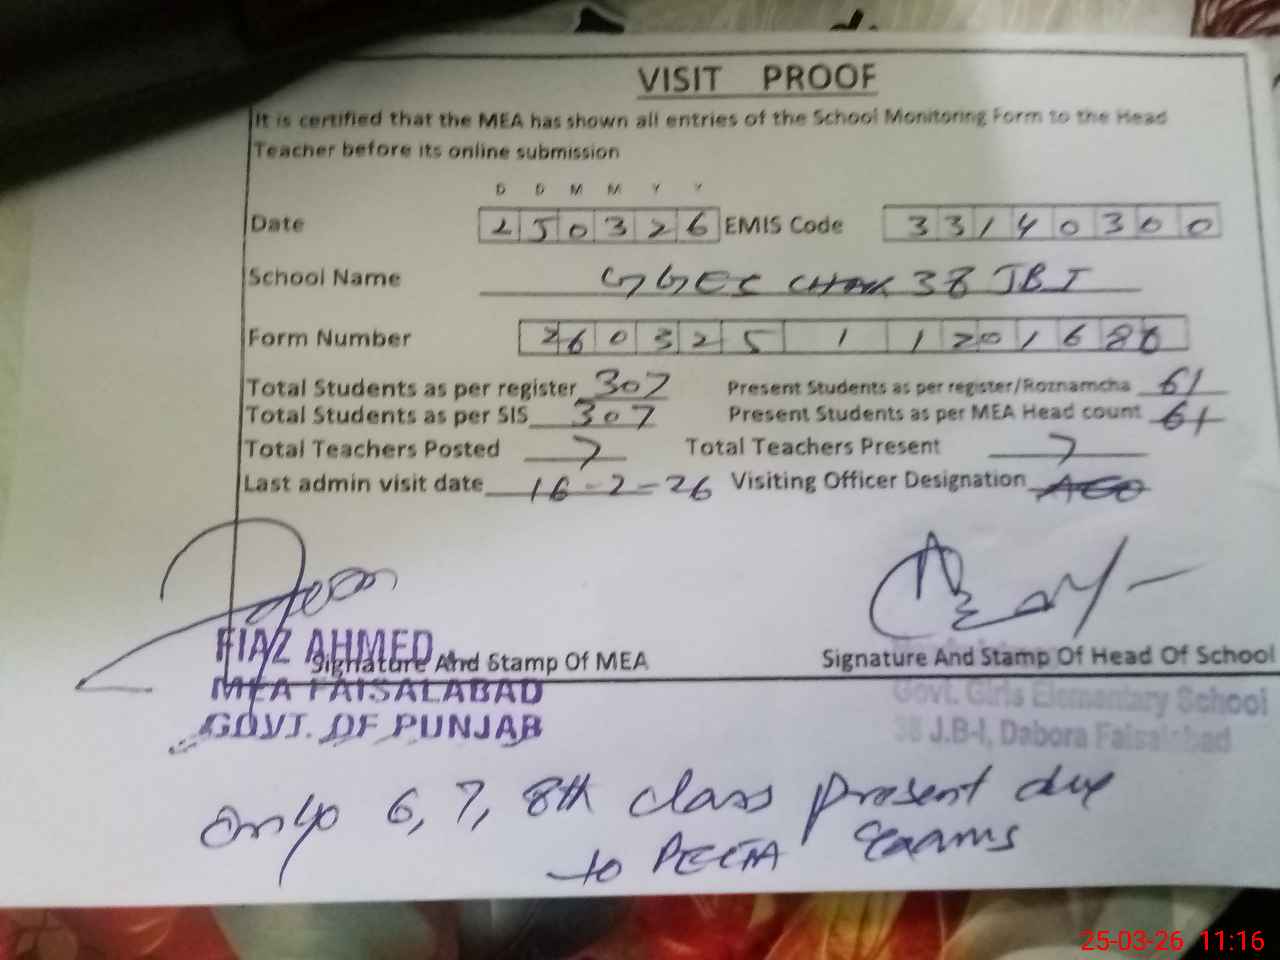 VISIT PROOF
It is certified that the MEA has shown all entries of the School Monitoring Form to the Head
Teacher before its online submission
D D M M Y Y
Date 250326 EMIS Code 33140300
School Name GGES CHAK 38 JBI
Form Number 260325 1 1201686
Total Students as per register 307 Present Students as per register/Roznamcha 61
Total Students as per SIS 307 Present Students as per MEA Head count 61
Total Teachers Posted 7 Total Teachers Present 7
Last admin visit date 16-2-26 Visiting Officer Designation AEO
FIAZ AHMED
Signature And Stamp Of MEA Signature And Stamp Of Head Of School
MEA FAISALABAD Govt. Girls Elementary School
GOVT. OF PUNJAB 38 J.B-I, Dabora Faisalabad
only 6, 7, 8th class present due
to PECTA Exams
25-03-26 11:16